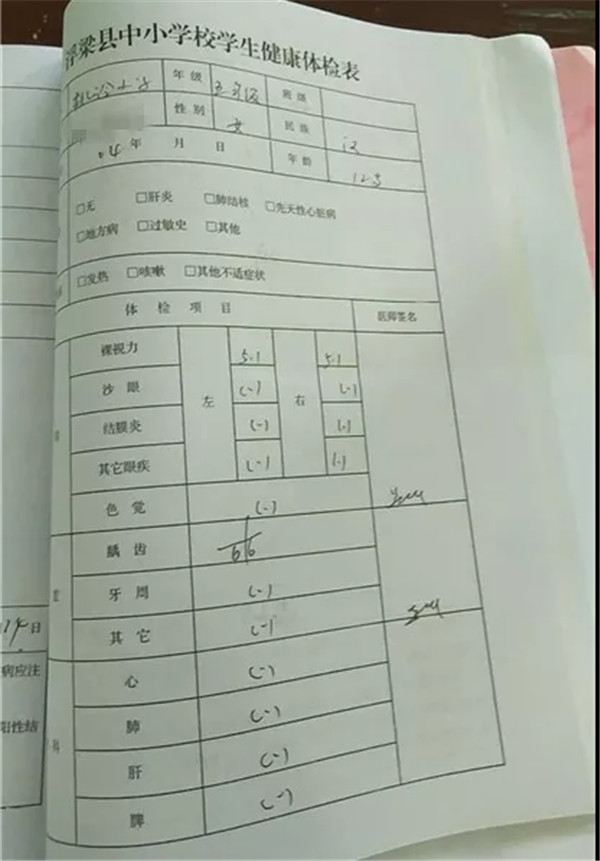 浮梁县中小学校学生健康体检表
小学 年级 五年级 班级
性别 女 民族 汉
04年 月 日 年龄 12岁
□无 □肝炎 □肺结核 □先天性心脏病
□地方病 □过敏史 □其他
□发热 □咳嗽 □其他不适症状
体检项目 医师签名
裸视力 左 5.1 右 5.1
沙眼 (-) (-)
结膜炎 (-) (-)
其它眼疾 (-) (-)
色觉 (-)
龋齿 6 6
牙周 (-)
其它 (-)
心 (-)
肺 (-)
肝 (-)
脾 (-)
科
日
病应注
阳性结